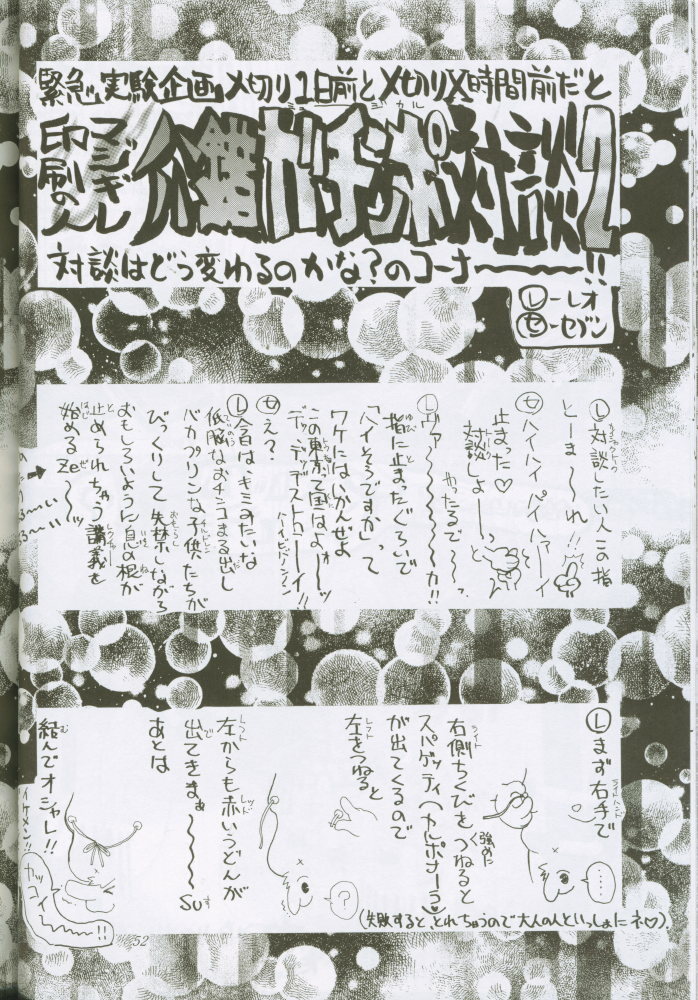 緊急実験企画〆切り1日前と〆切りX時間前だと
印刷の人
マジギレ
対談2
対談はどう変わるのかな？のコーナー〜〜〜!!
Ⓛーレオ
㋝ーセブン
Ⓛ対談したい人この指
とーま〜れ!!
㋝ハイハイパイハァーイ
止まった♡
対談しよ〜
やったるで〜〜っ
Ⓛヴァ〜〜〜〜〜カ!!
指に止まったぐらいで
「ハイそうですか」って
ワケにはいかんぜよ
この東方って国はよォ〜ッ
㋝え？
Ⓛ今日はキミみたいな
低脳なおチンコまる出し
バカプリンな子供たちが
びっくりして失禁しながら
おもしろいように息の根が
止められちゃう講義を
始めるZe〜〜〜ッ
Ⓛまず右手で
右側ちくびをつねると
スパゲッティ(カルボナーラ)
が出てくるので
左をつねると
左からも赤いうどんが
出てきまぁ〜〜〜〜su
あとは
結んでオシャレ!!
イケメン!!
カッコイ〜〜〜!!
……
？
(失敗すると、とれちゃうので大人の人といっしょにネ♡)
52